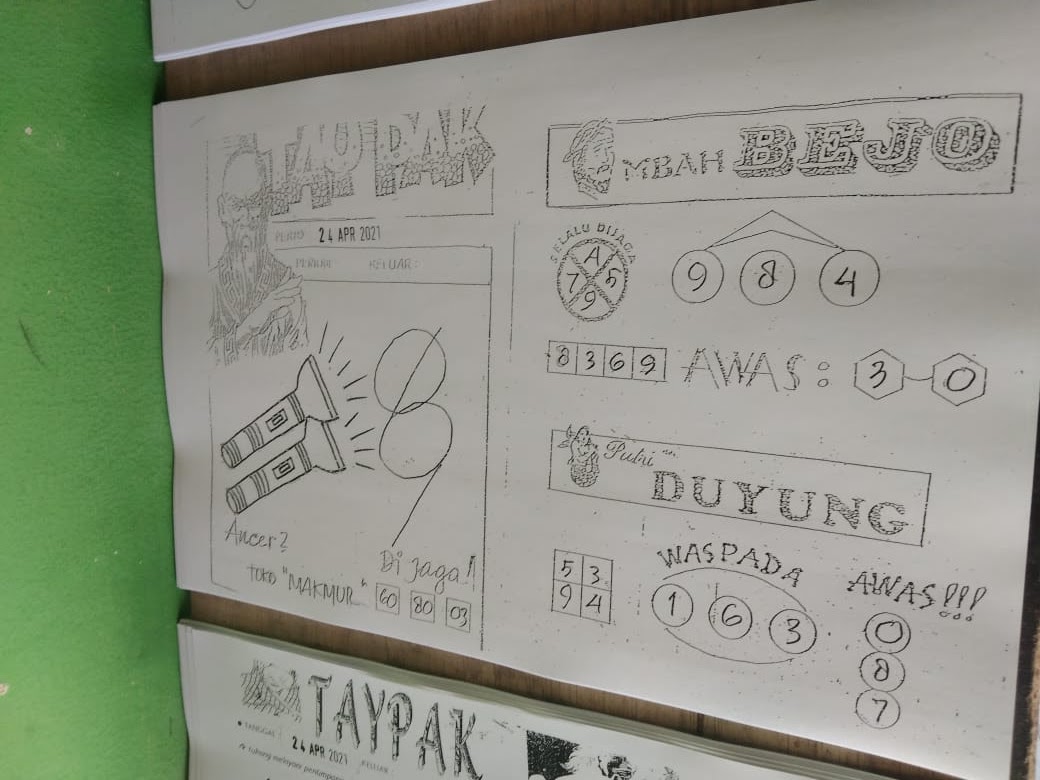 TAYPAK
24 APR 2021
KELUAR:
Ancer2
TOKO "MAKMUR"
Di jaga!!
60 80 03
MBAH BEJO
SELALU DIJAGA
A
7 5
9
9 8 4
8 3 6 9
AWAS: 3-0
Putri
DUYUNG
5 3
9 4
WASPADA
1 6 3
AWAS!!!
0
8
7
TAYPAK
TANGGAL
24 APR 2021
KELUAR